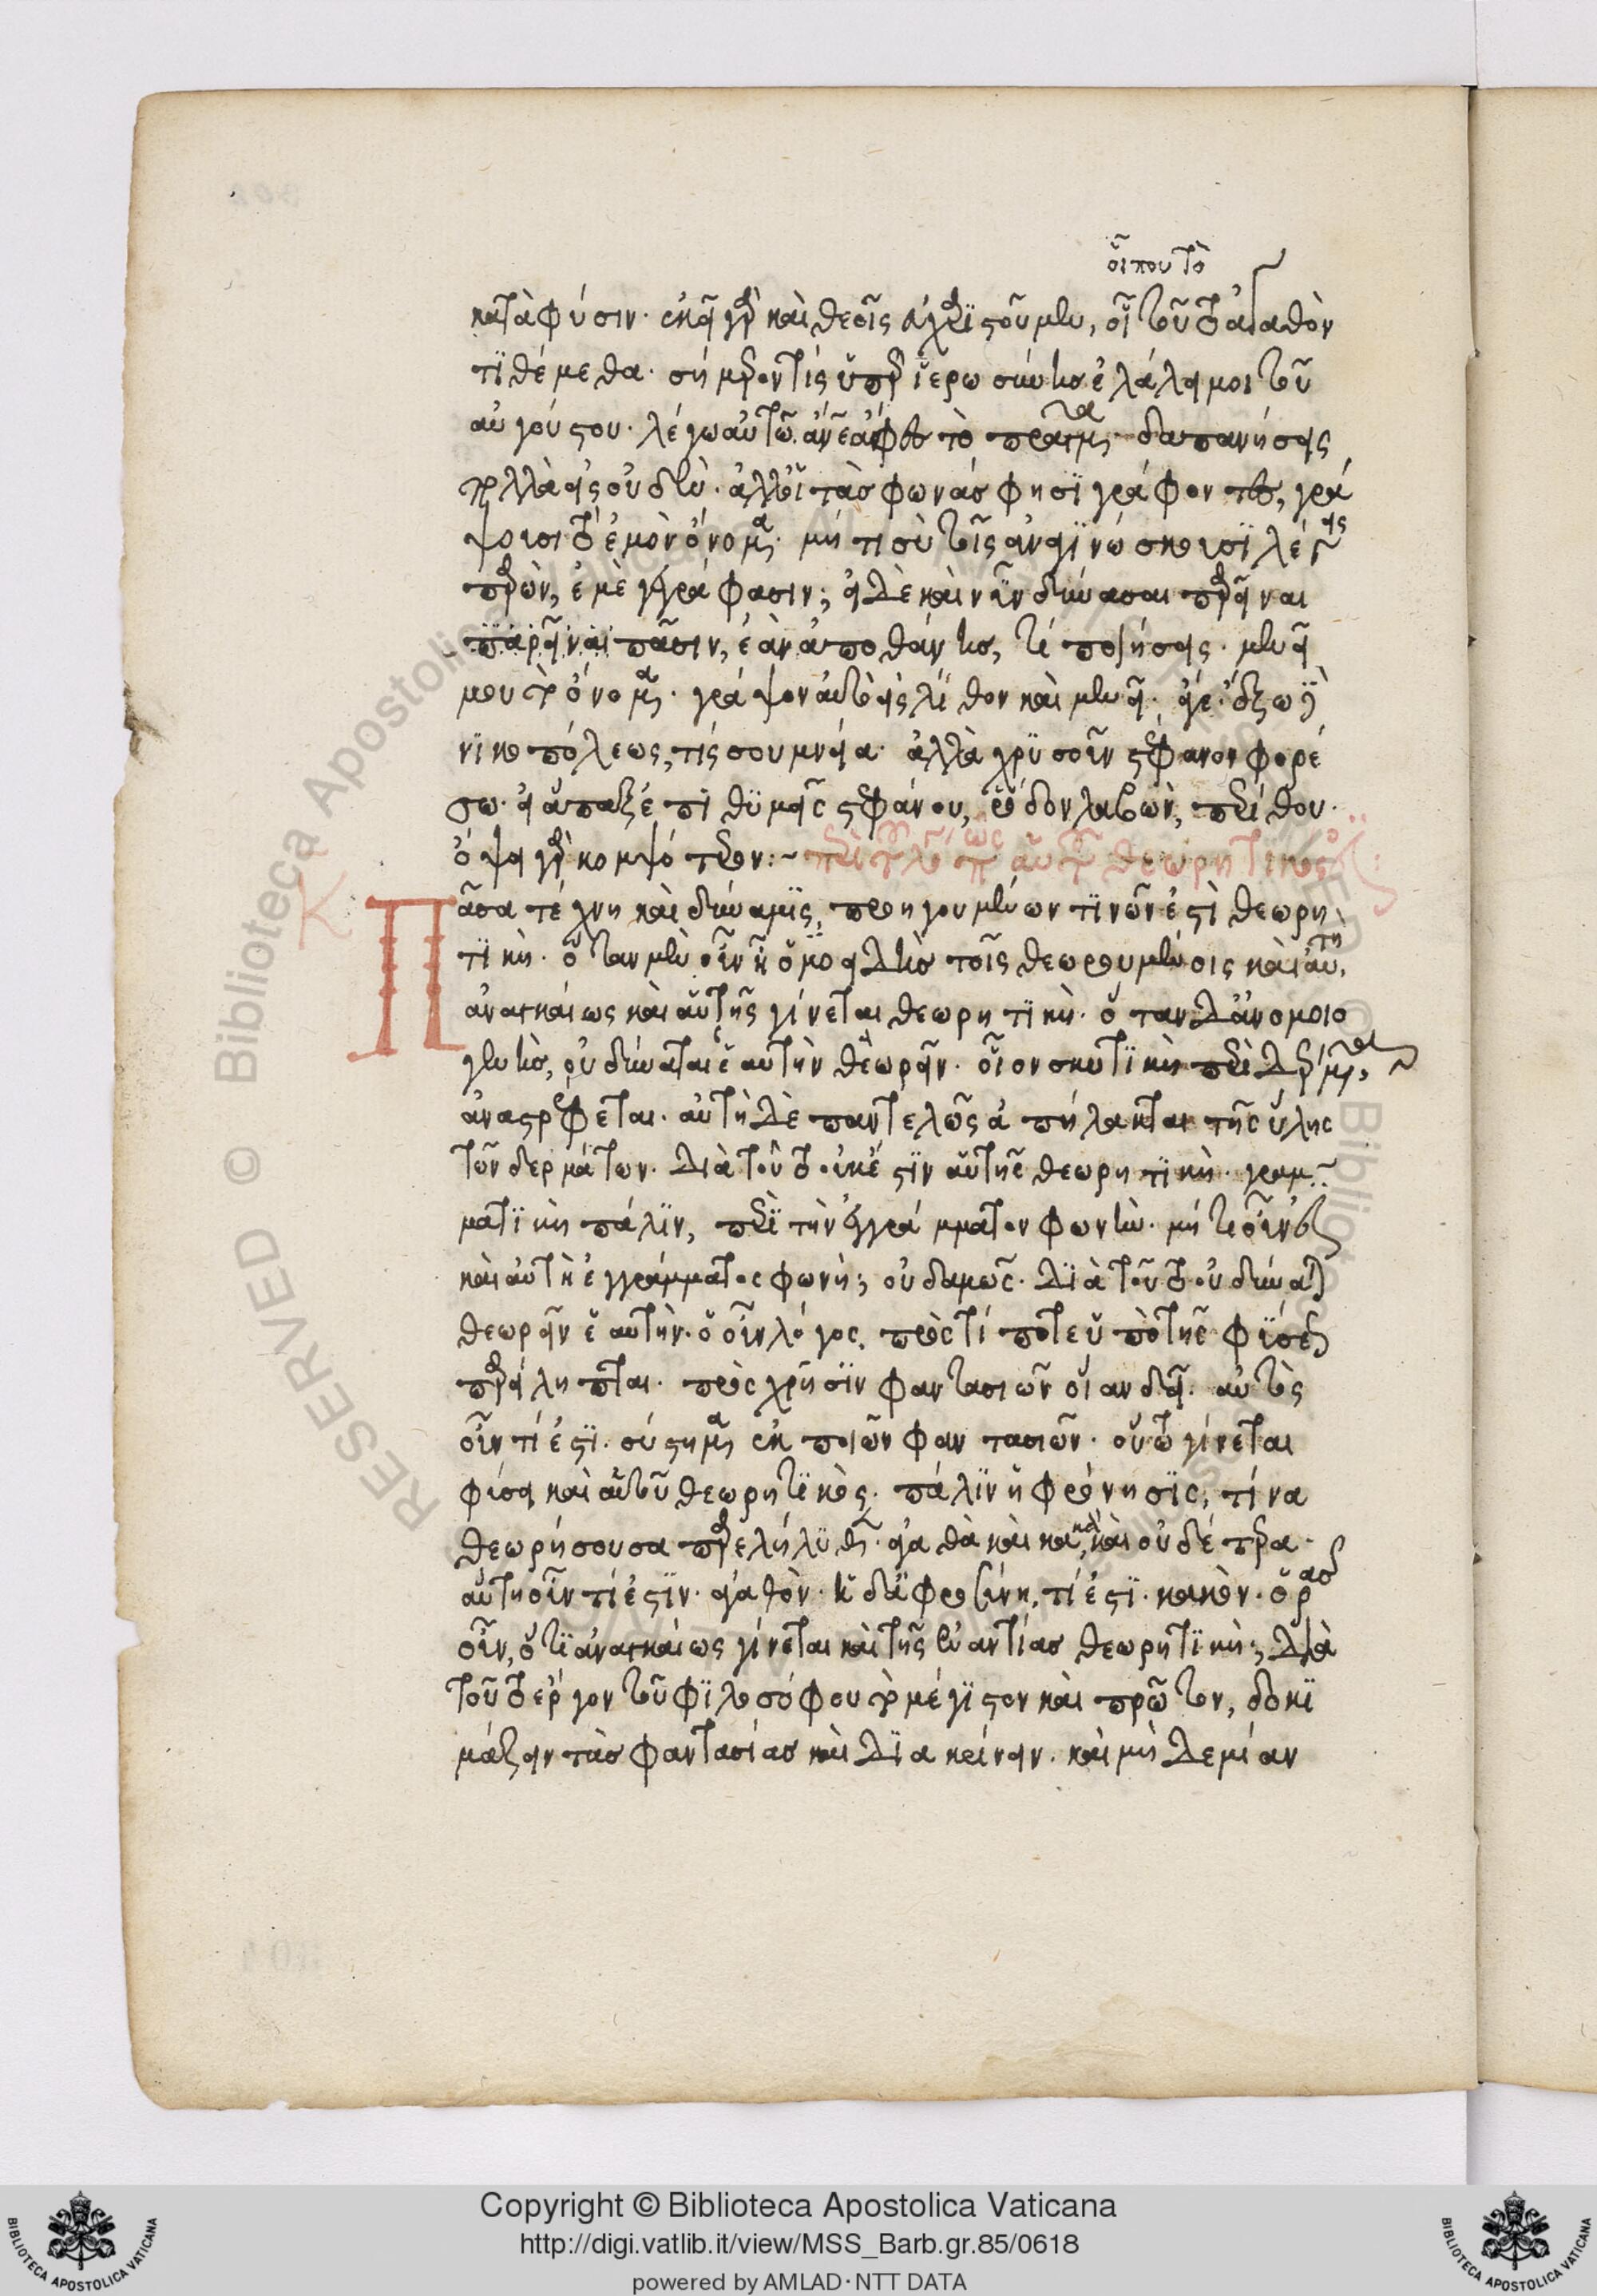 οἷπου τὸ
κατὰ φύσιν· ἐκεῖ γὰρ καὶ θεοῖς εὐχαριστοῦμεν, οἷ τοῦτ ἀγαθὸν
τιθέμεθα· σήμερόν τίς ὑπὲρ ἱερωσύνης ἐλάλει μοι τοῦ
αὐγούστου· λέγω αὐτῶ. ἄνε ἄφες τὸ πρᾶγμα· δαπανήσεις
πολλὰ εἰς οὐδέν· ἀλλ' οἱ τὰς φωνάς φησι γράφοντες, γρά
ψουσι τὸ ἐμὸν ὄνομα· μή τι σὺ τοῖς ἀναγινώσκουσι λέγεις
παρών, ἐμὲ γεγράφασιν; εἰ δὲ καὶ νῦν δύνασαι παρεῖναι
παρεῖναι πᾶσιν, ἐὰν ἀποθάνης, τί ποιήσεις· μενεῖ
μου τὸ ὄνομα· γράψον αὐτὸ εἰς λίθον καὶ μενεῖ·
νικοπόλεως, τίς σου μνεία· ἀλλὰ χρυσοῦν στέφανον φορέ
σω· εἰ ἅπαξ ἐπιθυμεῖς στεφάνου, ῥόδον λαβὼν, περίθου·
ὄψει γὰρ κομψότερον:~ περὶ τοῦ λόγου πῶς αὑτοῦ θεωρητικός
Πᾶσα τέχνη καὶ δύναμις, προηγουμένων τινῶν ἐστὶ θεωρη
τική· ὅταν μὲν οὖν ἦ ὁμοειδὴς τοῖς θεωρουμένοις καὶ αὐτὴ,
ἀναγκαίως καὶ αὑτῆς γίνεται θεωρητική· ὅταν δ' ἀνομοιο
γενὴς, οὐ δύναται ἑαυτὴν θεωρεῖν· οἷον σκυτικὴ περὶ δέρματα
ἀναστρέφεται· αὐτὴ δὲ παντελῶς ἀπήλακται τῆς ὕλης
τῶν δερμάτων· διὰ τοῦτο οὐκ ἔστιν αὑτῆς θεωρητική· γραμ
ματικὴ πάλιν, περὶ τὴν ἐγγράμματον φωνήν· μή τι οὖν ἐστὶ
καὶ αὐτὴ ἐγγράμματος φωνή; οὐδαμῶς· διὰ τοῦτο οὐ δύναται
θεωρεῖν ἑαυτήν· ὁ οὖν λόγος, πρὸς τί ποτε ὑπὸ τῆς φύσεως
παρείληπται· πρὸς χρῆσιν φαντασιῶν οἵαν δεῖ· αὐτὸς
οὖν τί ἐστι· σύστημα ἐκ ποιῶν φαντασιῶν· οὕτω γίνεται
φύσει καὶ αὑτοῦ θεωρητικός· πάλιν ἡ φρόνησις, τίνα
θεωρήσουσα παρελήλυθεν· ἀγαθὰ καὶ κακὰ, καὶ οὐδέτερα·
αὕτη οὖν τί ἐστιν· ἀγαθόν· ἡ δ' ἀφροσύνη, τί ἐστι· κακόν· ὁρᾶς
οὖν, ὅτι ἀναγκαίως γίνεται καὶ τῆς ἐναντίας θεωρητική; διὰ
τοῦτο ἔργον τοῦ φιλοσόφου τὸ μέγιστον καὶ πρῶτον, δοκι
μάζειν τὰς φαντασίας καὶ διακρίνειν· καὶ μὴ δεμίαν
Copyright © Biblioteca Apostolica Vaticana
http://digi.vatlib.it/view/MSS_Barb.gr.85/0618
powered by AMLAD·NTT DATA